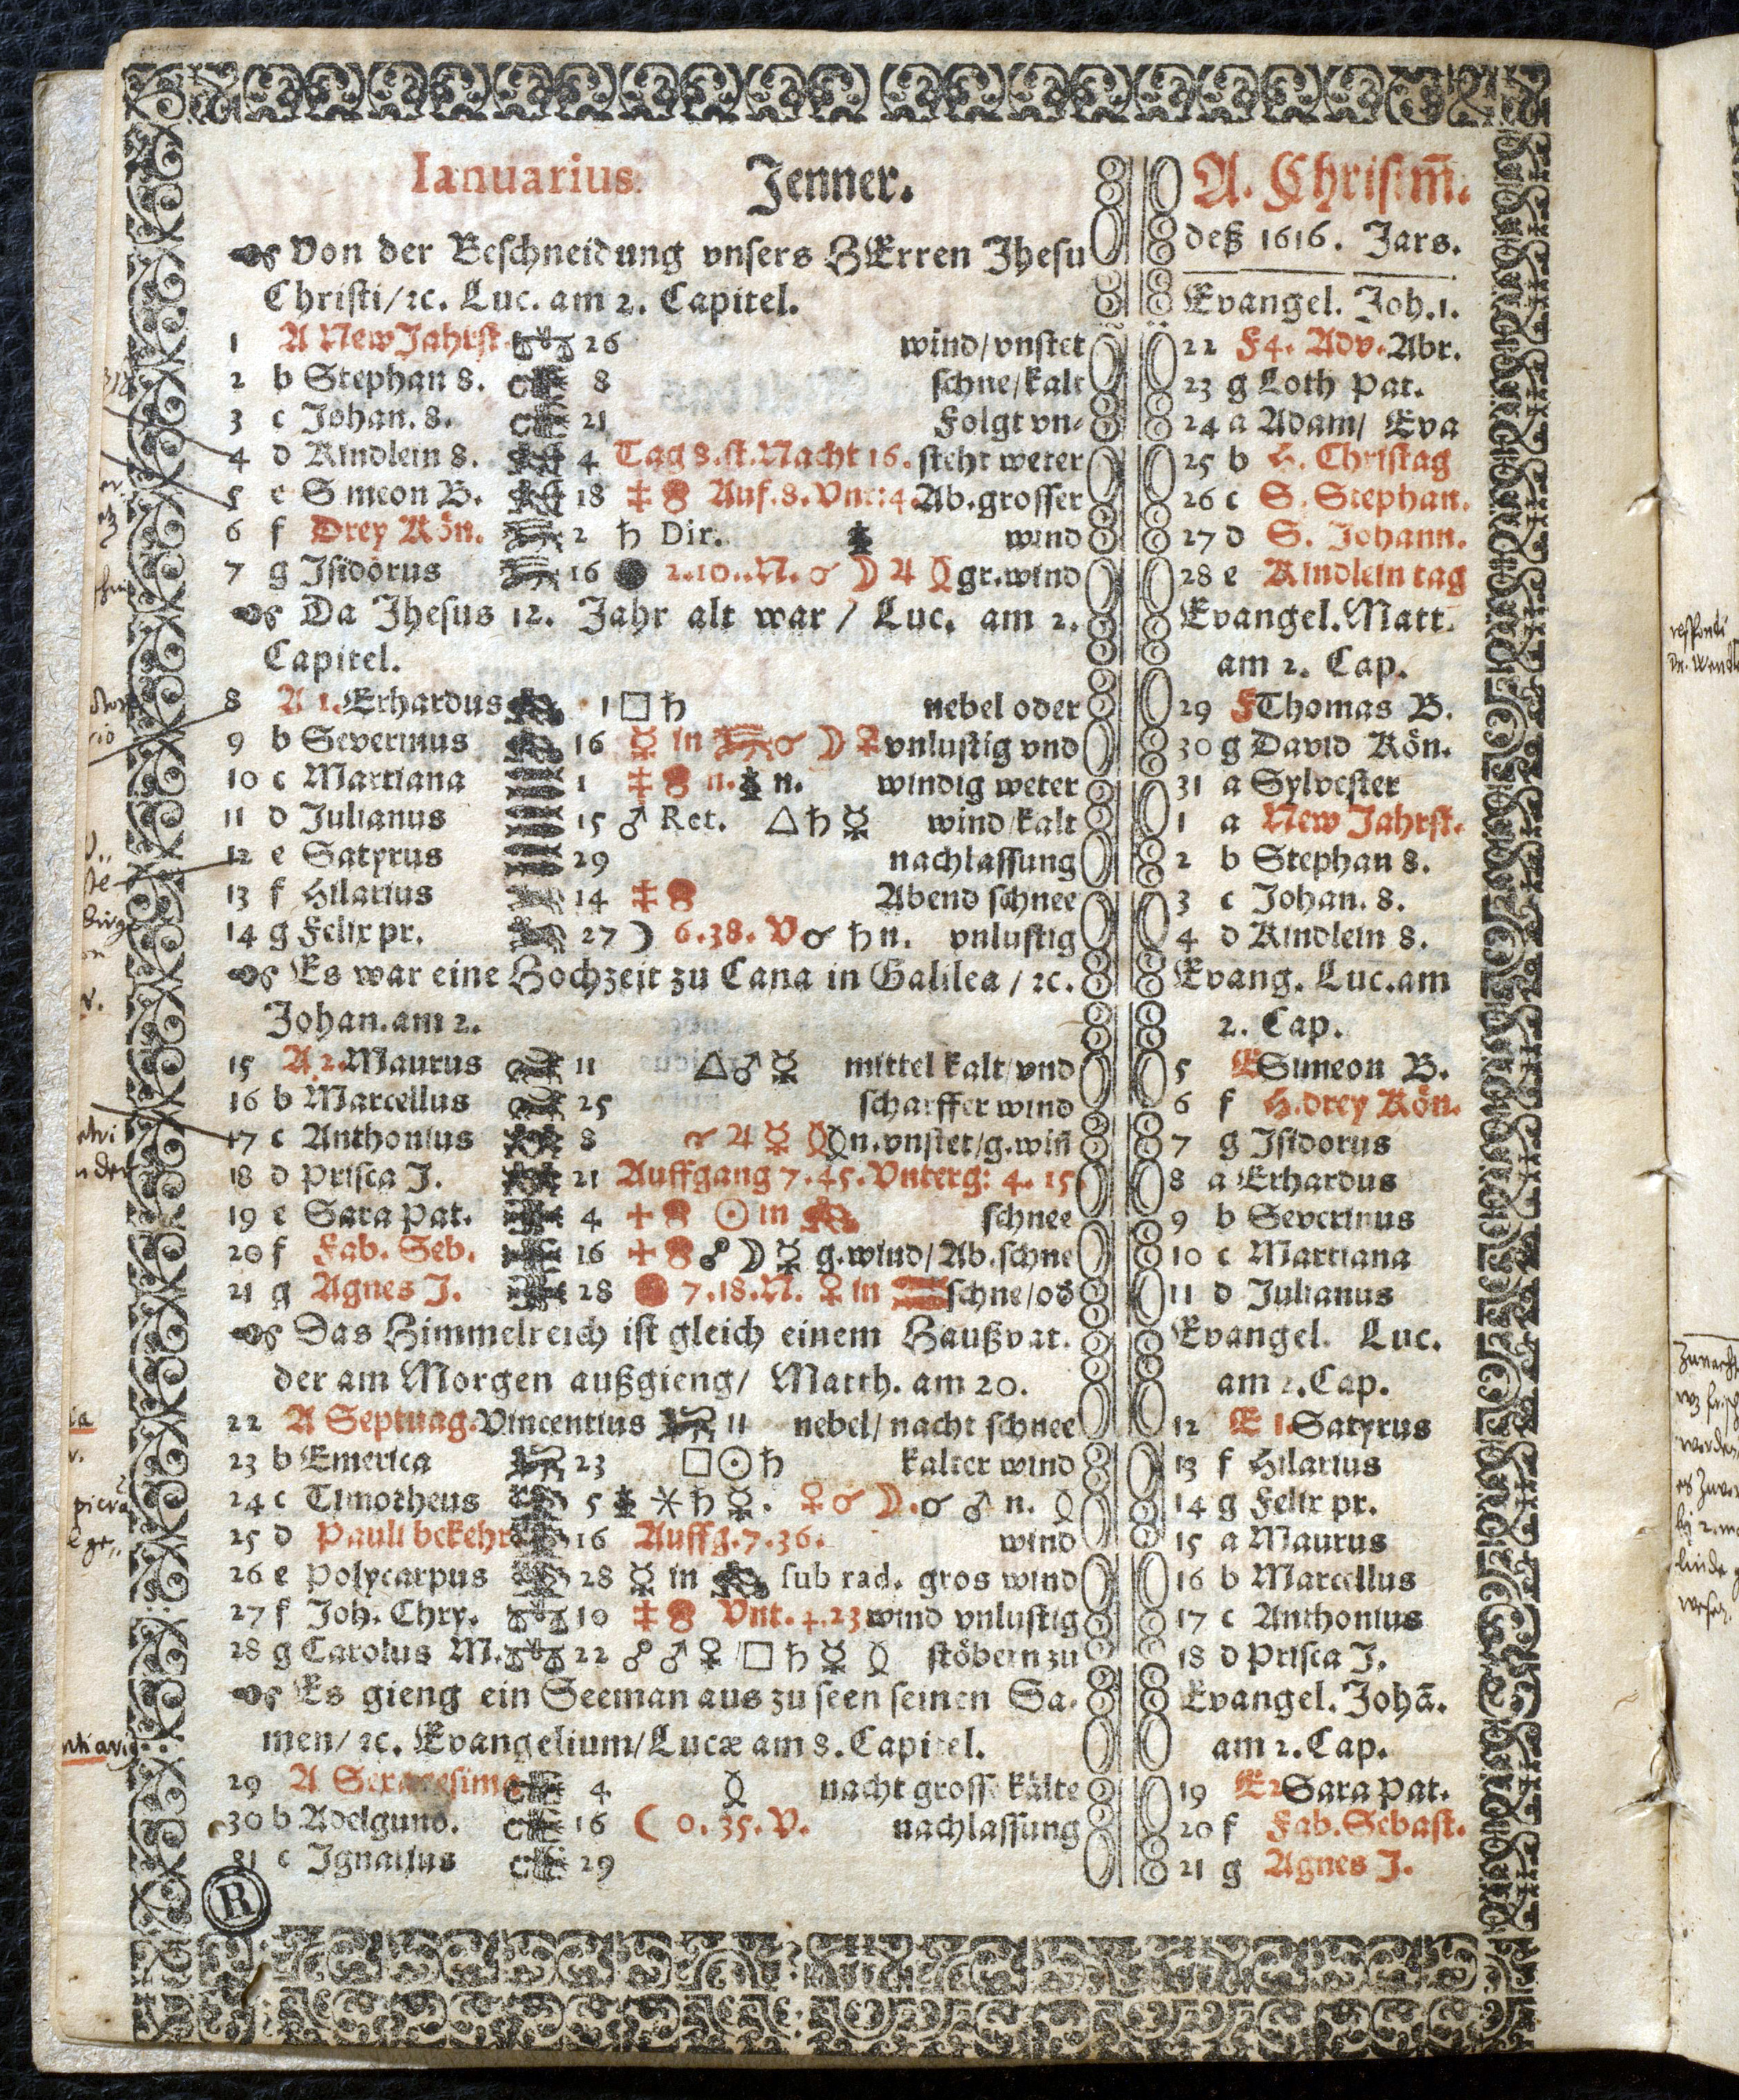 Ianuarius. Jenner.
Von der Beschneidung vnsers HErren Jhesu
Christi/ꝛc. Luc. am 2. Capitel.
1 A New Jahrst. 26 wind/vnstet
2 b Stephan 8. 8 schne/kalt
3 c Johan. 8. 21 Folgt vn-
4 d Kindlein 8. 4 Tag 8.st.Nacht 16. steht weter
5 e Simeon B. 18 Auf.8.Vnt:4. Ab.grosser
6 f Drey Kön. 2 ♄ Dir. wind
7 g Isidorus 16 2.10..N. ☌ ☽ ♃ gr.wind
Da Jhesus 12. Jahr alt war / Luc. am 2.
Capitel.
8 A 1. Erhardus 1 □ ♄ nebel oder
9 b Severinus 16 ☿ in ♑ ☌ ☽ ♀ vnlustig vnd
10 c Martiana 1 n. n. windig weter
11 d Julianus 15 ♂ Ret. △ ♄ ☿ wind/kalt
12 e Satyrus 29 nachlassung
13 f Hilarius 14 Abend schnee
14 g Felix pr. 27 ☽ 6.38. V ☌ ♄ n. vnlustig
Es war eine Hochzeit zu Cana in Galilea / ꝛc.
Johan. am 2.
15 A 2. Maurus 11 △ ♂ ☿ mittel kalt/vnd
16 b Marcellus 25 scharffer wind
17 c Anthonius 8 ☌ ♃ ☿ n. vnstet/g.win̄
18 d Prisca J. 21 Auffgang 7.45. Vnterg: 4. 15.
19 e Sara Pat. 4 ☉ in ♒ schnee
20 f Fab. Seb. 16 ☍ ☽ ☿ g.wind/Ab.schne
21 g Agnes J. 28 7.18.N. ♀ in ♓ schne/od
Das Himmelreich ist gleich einem Haußvat.
der am Morgen außgieng/ Matth. am 20.
22 A Septuag. Vincentius 11 nebel/nacht schnee
23 b Emerica 23 □ ☉ ♄ kalter wind
24 c Timotheus 5 ⚹ ♄ ☿. ♀ ☌ ☽. ☌ ♂ n.
25 d Pauli bekehr 16 Auffg.7.36. wind
26 e Polycarpus 28 ☿ in ♒ sub rad. gros wind
27 f Joh. Chry. 10 Vnt. 4.23 wind vnlustig
28 g Carolus M. 22 ☍ ♂ ♀ □ ♄ ☿ stöbern zu
Es gieng ein Seeman aus zu seen seinen Sa-
men/ ꝛc. Evangelium/Lucæ am 8. Capitel.
29 A Sexagesima 4 nacht grosse kälte
30 b Adelgund. 16 ☾ 0.35.V. nachlassung
31 c Ignatius 29
R
A. Christm̄.
deß 1616. Jars.
Evangel. Joh.1.
22 F4. Adv. Abr.
23 g Loth Pat.
24 a Adam/ Eva
25 b H. Christag
26 c S. Stephan.
27 d S. Johann.
28 e Kindlein tag
Evangel. Matt.
am 2. Cap.
29 F Thomas B.
30 g David Kön.
31 a Sylvester
1 a New Jahrst.
2 b Stephan 8.
3 c Johan. 8.
4 d Kindlein 8.
Evang. Luc. am
2. Cap.
5 E Simeon B.
6 f H. drey Kön.
7 g Isidorus
8 a Erhardus
9 b Severinus
10 c Martiana
11 d Julianus
Evangel. Luc.
am 2. Cap.
12 E 1. Satyrus
13 f Hilarius
14 g Felix pr.
15 a Maurus
16 b Marcellus
17 c Anthonius
18 d Prisca J.
Evangel. Johā.
am 2. Cap.
19 E2 Sara Pat.
20 f Fab. Sebast.
21 g Agnes J.